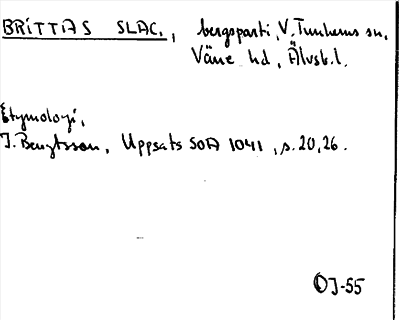 BRITTAS SLAG, bergsparti, V. Tunhems sn,
Väne hd, Älvsb. l.
Etymologi,
J. Bengtsson, Uppsats SOA 1041, s. 20, 26.
OJ-55